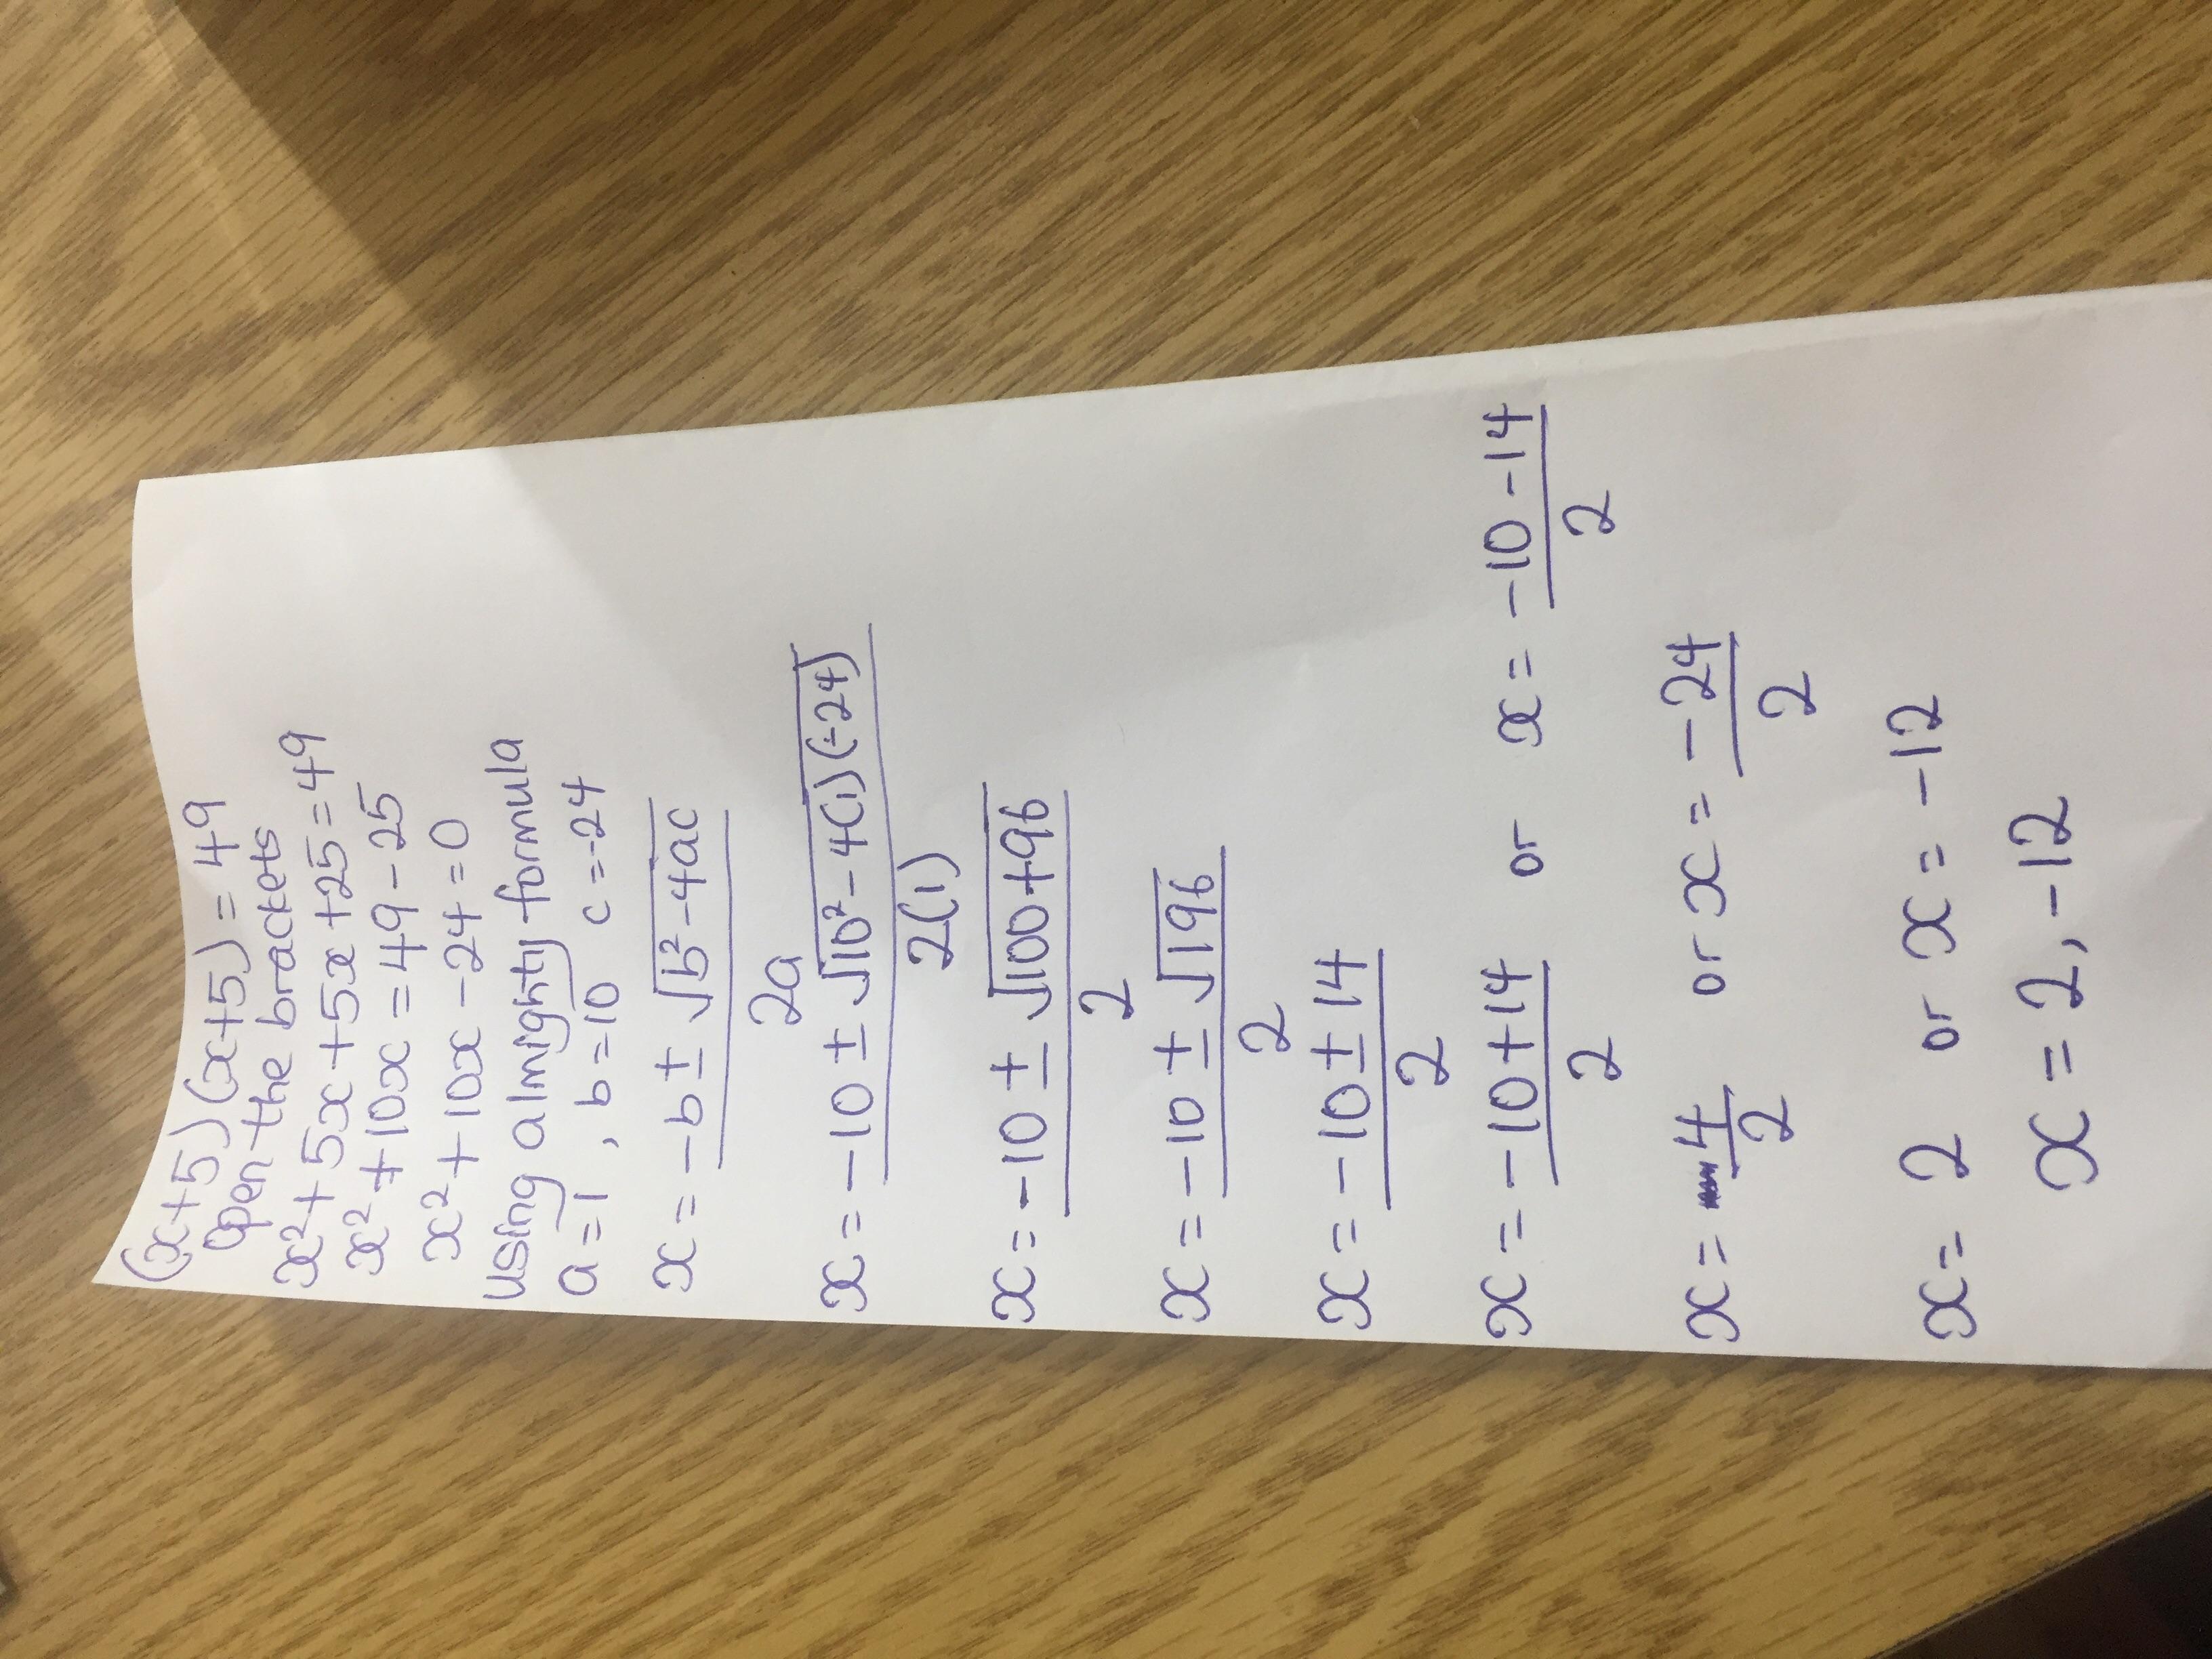 (x+5)(x+5) = 49
Open the brackets
x²+5x+5x+25=49
x²+10x=49-25
x²+10x-24=0
Using almighty formula
a=1, b=10 c=-24
x = -b ± √b²-4ac
2a
x = -10 ± √10²-4(1)(-24)
2(1)
x = -10 ± √100+96
2
x = -10 ± √196
2
x = -10 ± 14
2
x = -10+14 or x = -10-14
2 2
x = 4 or x = -24
2 2
x = 2 or x = -12
x = 2, -12